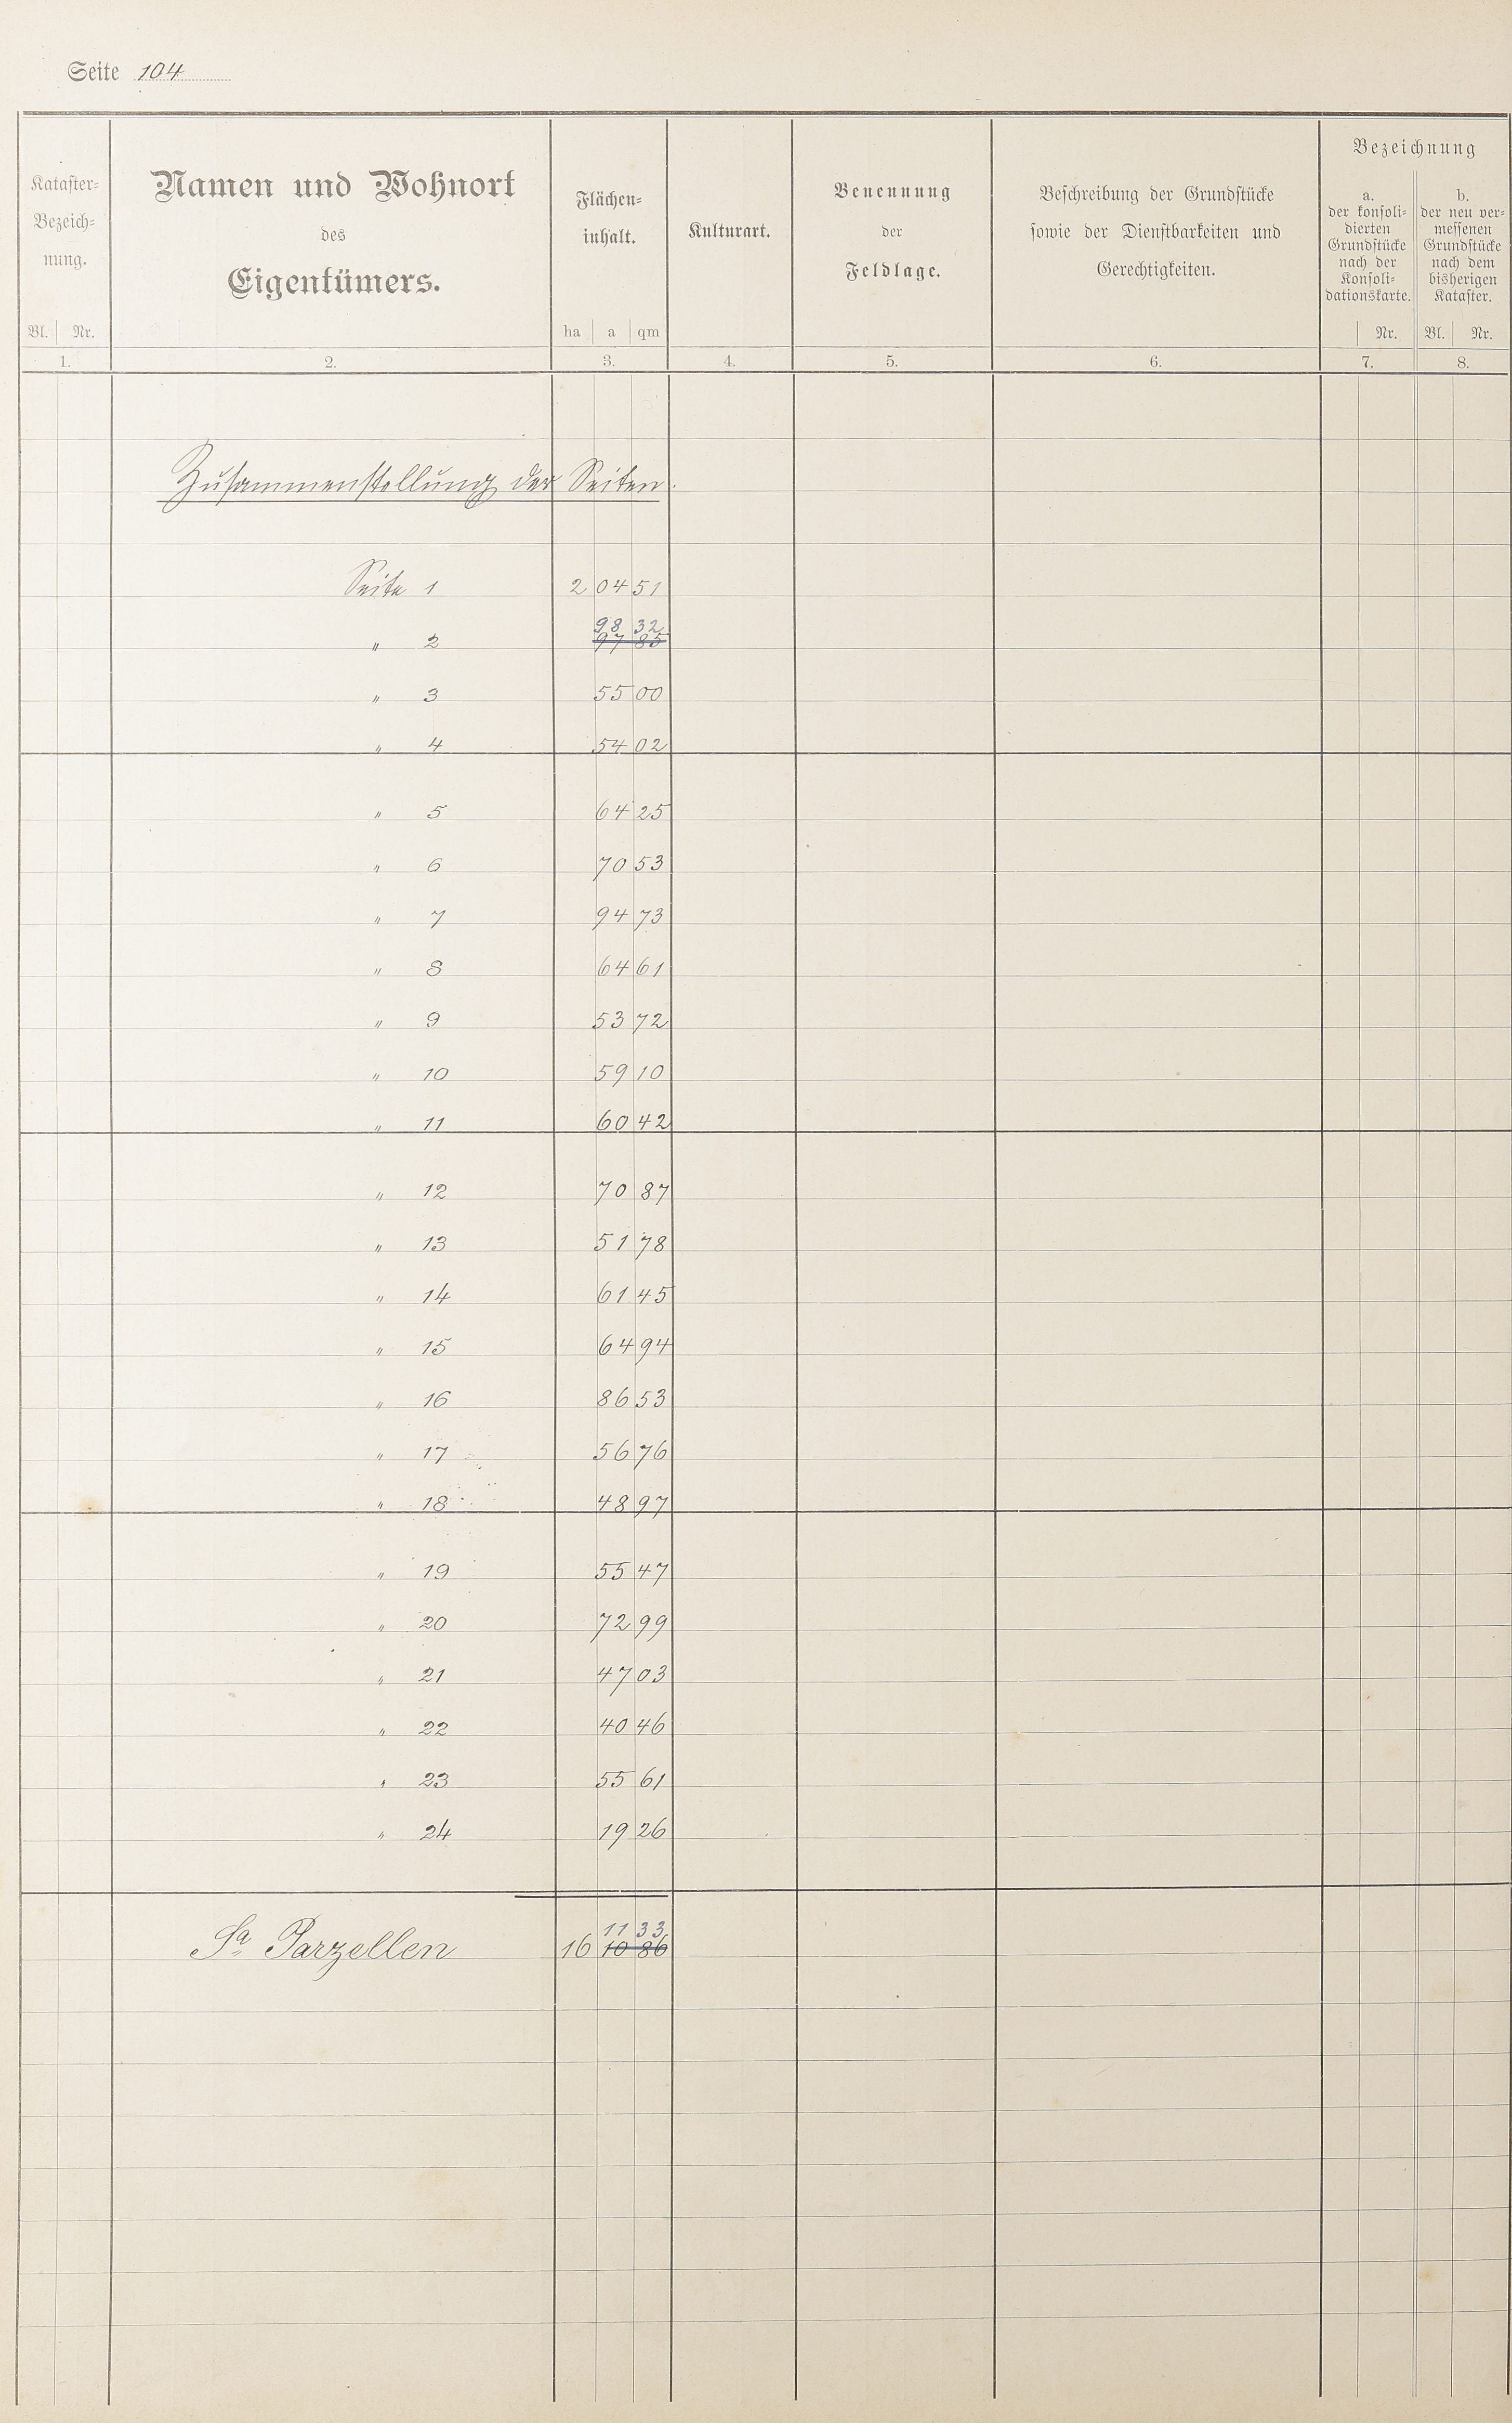 Seite 104
Kataster-
Bezeich-
nung.
Bl. Nr.
1.
Namen und Wohnort
des
Eigentümers.
2.
Flächen-
inhalt.
ha a qm
3.
Kulturart.
4.
Benennung
der
Feldlage.
5.
Beschreibung der Grundstücke
sowie der Dienstbarkeiten und
Gerechtigkeiten.
6.
Bezeichnung
a.
der konsoli-
dierten
Grundstücke
nach der
Konsoli-
dationskarte.
Nr.
7.
b.
der neu ver-
messenen
Grundstücke
nach dem
bisherigen
Kataster.
Bl. Nr.
8.
Zusammenstellung der Seiten.
Seite 1 2 04 51
98 32
" 2 97 85
" 3 55 00
" 4 54 02
" 5 64 25
" 6 70 53
" 7 94 73
" 8 64 61
" 9 53 72
" 10 59 10
" 11 60 42
" 12 70 87
" 13 51 78
" 14 61 45
" 15 64 94
" 16 86 53
" 17 56 76
" 18 48 97
" 19 55 47
" 20 72 99
" 21 47 03
" 22 40 46
" 23 55 61
" 24 19 26
11 33
Sa Parzellen 16 10 86